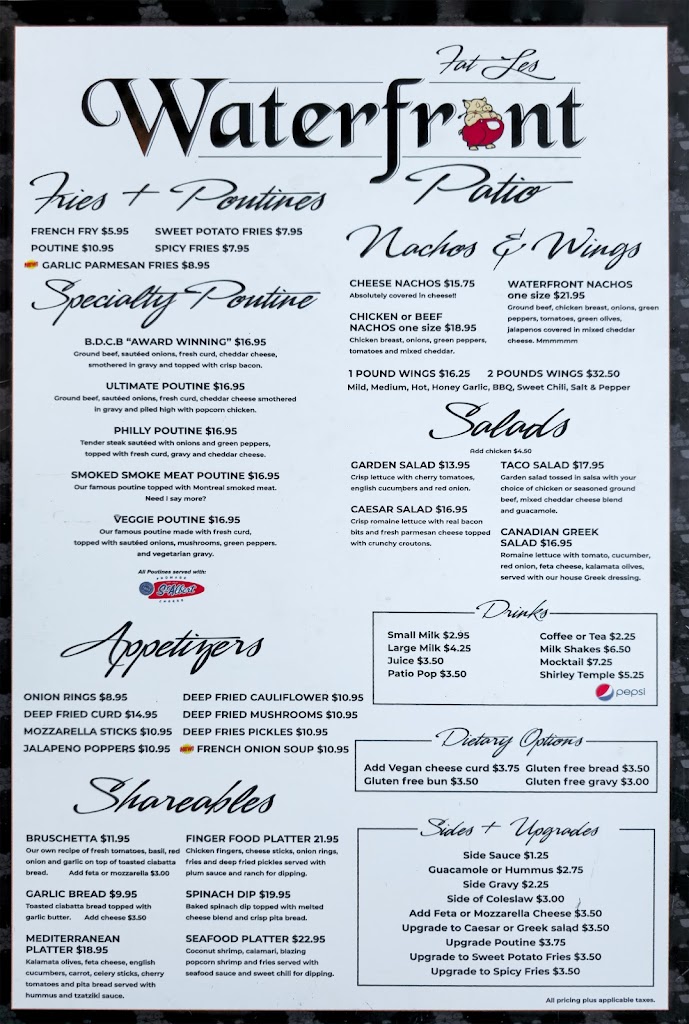 Fat Les
Waterfront
Patio
Fries + Poutines
FRENCH FRY $5.95 SWEET POTATO FRIES $7.95
POUTINE $10.95 SPICY FRIES $7.95
NEW! GARLIC PARMESAN FRIES $8.95
Specialty Poutine
B.D.C.B "AWARD WINNING" $16.95
Ground beef, sautéed onions, fresh curd, cheddar cheese,
smothered in gravy and topped with crisp bacon.
ULTIMATE POUTINE $16.95
Ground beef, sautéed onions, fresh curd, cheddar cheese smothered
in gravy and piled high with popcorn chicken.
PHILLY POUTINE $16.95
Tender steak sautéed with onions and green peppers,
topped with fresh curd, gravy and cheddar cheese.
SMOKED SMOKE MEAT POUTINE $16.95
Our famous poutine topped with Montreal smoked meat.
Need I say more?
VEGGIE POUTINE $16.95
Our famous poutine made with fresh curd,
topped with sautéed onions, mushrooms, green peppers.
and vegetarian gravy.
All Poutines served with:
FROMAGE
St-Albert
CHEESE
Appetizers
ONION RINGS $8.95 DEEP FRIED CAULIFLOWER $10.95
DEEP FRIED CURD $14.95 DEEP FRIED MUSHROOMS $10.95
MOZZARELLA STICKS $10.95 DEEP FRIES PICKLES $10.95
JALAPENO POPPERS $10.95 NEW! FRENCH ONION SOUP $10.95
Shareables
BRUSCHETTA $11.95
Our own recipe of fresh tomatoes, basil, red
onion and garlic on top of toasted ciabatta
bread. Add feta or mozzarella $3.00
GARLIC BREAD $9.95
Toasted ciabatta bread topped with
garlic butter. Add cheese $3.50
MEDITERRANEAN
PLATTER $18.95
Kalamata olives, feta cheese, english
cucumbers, carrot, celery sticks, cherry
tomatoes and pita bread served with
hummus and tzatziki sauce.
FINGER FOOD PLATTER 21.95
Chicken fingers, cheese sticks, onion rings,
fries and deep fried pickles served with
plum sauce and ranch for dipping.
SPINACH DIP $19.95
Baked spinach dip topped with melted
cheese blend and crisp pita bread.
SEAFOOD PLATTER $22.95
Coconut shrimp, calamari, blazing
popcorn shrimp and fries served with
seafood sauce and sweet chili for dipping.
Nachos & Wings
CHEESE NACHOS $15.75
Absolutely covered in cheese!!
CHICKEN or BEEF
NACHOS one size $18.95
Chicken breast, onions, green peppers,
tomatoes and mixed cheddar.
WATERFRONT NACHOS
one size $21.95
Ground beef, chicken breast, onions, green
peppers, tomatoes, green olives,
jalapenos covered in mixed cheddar
cheese. Mmmmmm
1 POUND WINGS $16.25 2 POUNDS WINGS $32.50
Mild, Medium, Hot, Honey Garlic, BBQ, Sweet Chili, Salt & Pepper
Salads
Add chicken $4.50
GARDEN SALAD $13.95
Crisp lettuce with cherry tomatoes,
english cucumbers and red onion.
CAESAR SALAD $16.95
Crisp romaine lettuce with real bacon
bits and fresh parmesan cheese topped
with crunchy croutons.
TACO SALAD $17.95
Garden salad tossed in salsa with your
choice of chicken or seasoned ground
beef, mixed cheddar cheese blend
and guacamole.
CANADIAN GREEK
SALAD $16.95
Romaine lettuce with tomato, cucumber,
red onion, feta cheese, kalamata olives,
served with our house Greek dressing.
Drinks
Small Milk $2.95 Coffee or Tea $2.25
Large Milk $4.25 Milk Shakes $6.50
Juice $3.50 Mocktail $7.25
Patio Pop $3.50 Shirley Temple $5.25
pepsi
Dietary Options
Add Vegan cheese curd $3.75 Gluten free bread $3.50
Gluten free bun $3.50 Gluten free gravy $3.00
Sides + Upgrades
Side Sauce $1.25
Guacamole or Hummus $2.75
Side Gravy $2.25
Side of Coleslaw $3.00
Add Feta or Mozzarella Cheese $3.50
Upgrade to Caesar or Greek salad $3.50
Upgrade Poutine $3.75
Upgrade to Sweet Potato Fries $3.50
Upgrade to Spicy Fries $3.50
All pricing plus applicable taxes.